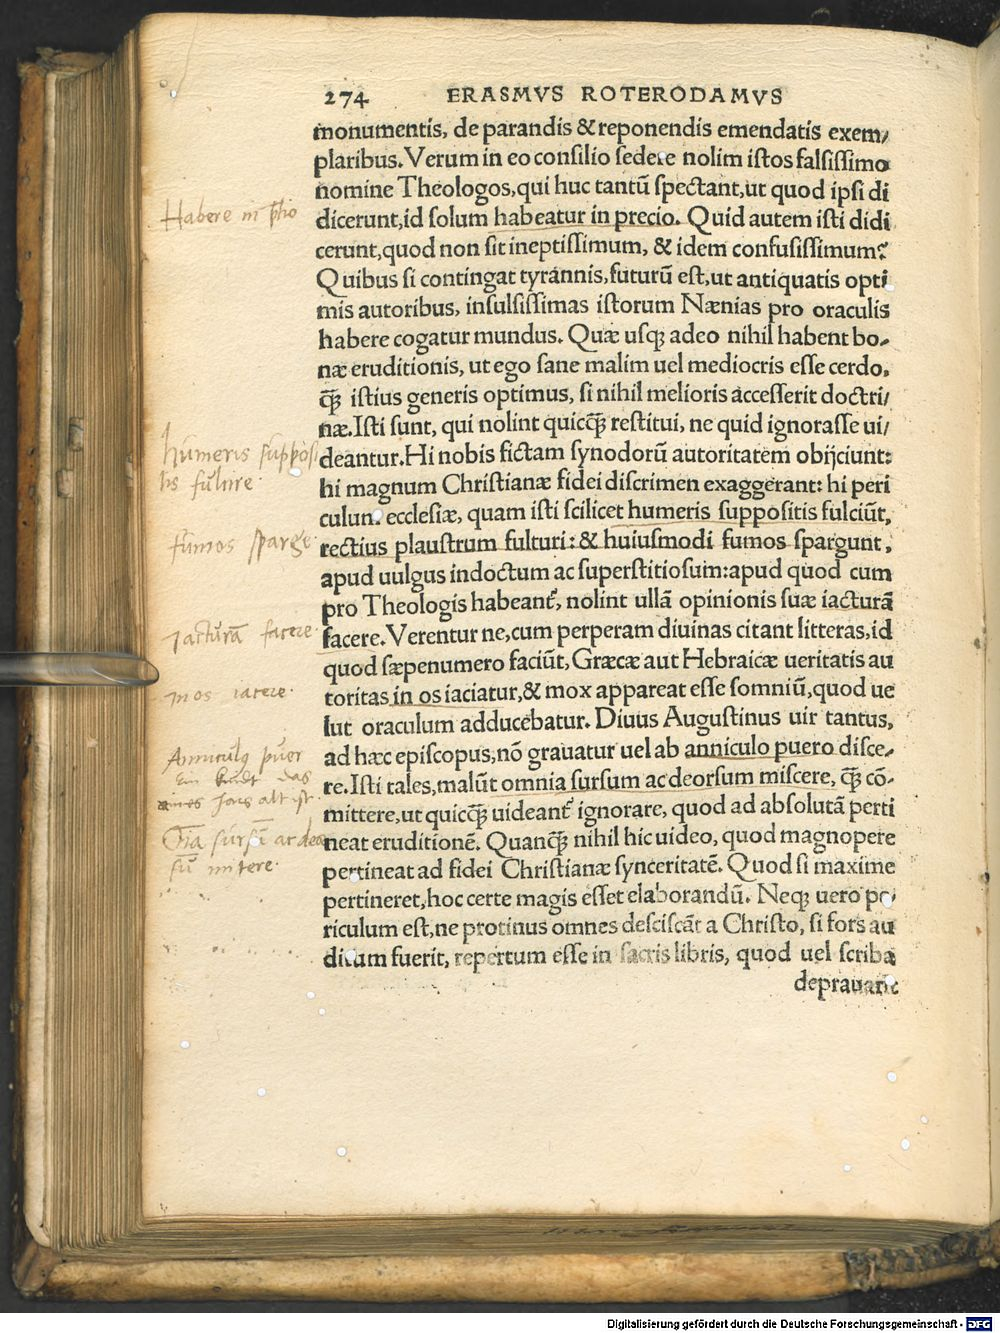 274 ERASMVS ROTERODAMVS
monumentis, de parandis & reponendis emendatis exem/
plaribus. Verum in eo consilio sedere nolim istos falsissimo
nomine Theologos, qui huc tantũ spectant, ut quod ipsi di
dicerunt, id solum habeatur in precio. Quid autem isti didi
cerunt, quod non sit ineptissimum, & idem confusissimum?
Quibus si contingat tyrannis, futurũ est, ut antiquatis opti
mis autoribus, insulsissimas istorum Nænias pro oraculis
habere cogatur mundus. Quæ usq; adeo nihil habent bo-
næ eruditionis, ut ego sane malim uel mediocris esse cerdo,
q̃; istius generis optimus, si nihil melioris accesserit doctri/
næ. Isti sunt, qui nolint quicq̃; restitui, ne quid ignorasse ui/
deantur. Hi nobis fictam synodorũ autoritatem obijciunt:
hi magnum Christianæ fidei discrimen exaggerant: hi peri
culum ecclesiæ, quam isti scilicet humeris suppositis fulciũt,
rectius plaustrum fulturi: & huiusmodi fumos spargunt,
apud uulgus indoctum ac superstitiosum: apud quod cum
pro Theologis habeant', nolint ullã opinionis suæ iacturã
facere. Verentur ne, cum perperam diuinas citant litteras, id
quod sæpenumero faciũt, Græcæ aut Hebraicæ ueritatis au
toritas in os iaciatur, & mox appareat esse somniũ, quod ue
lut oraculum adducebatur. Diuus Augustinus uir tantus,
ad hæc episcopus, nõ grauatur uel ab anniculo puero disce-
re. Isti tales, malũt omnia sursum ac deorsum miscere, q̃; cõ-
mittere, ut quicq̃; uideant' ignorare, quod ad absolutã perti
neat eruditionẽ. Quanq̃; nihil hic uideo, quod magnopere
pertineat ad fidei Christianæ synceritatẽ. Quod si maxime
pertineret, hoc certe magis esset elaborandũ. Neq; uero pe/
riculum est, ne protinus omnes desciscãt a Christo, si fors au
ditum fuerit, repertum esse in sacris libris, quod uel scriba
deprauarit
Habere in p̃tio
humeris supposi
tis fulcire.
fumos sparge
Jacturã facere.
in os iacere.
Anniculꝯ puer
ein kindt das
jars alt ist
Oĩa sursũ ac deor
sũ mitere.
Digitalisierung gefördert durch die Deutsche Forschungsgemeinschaft - DFG